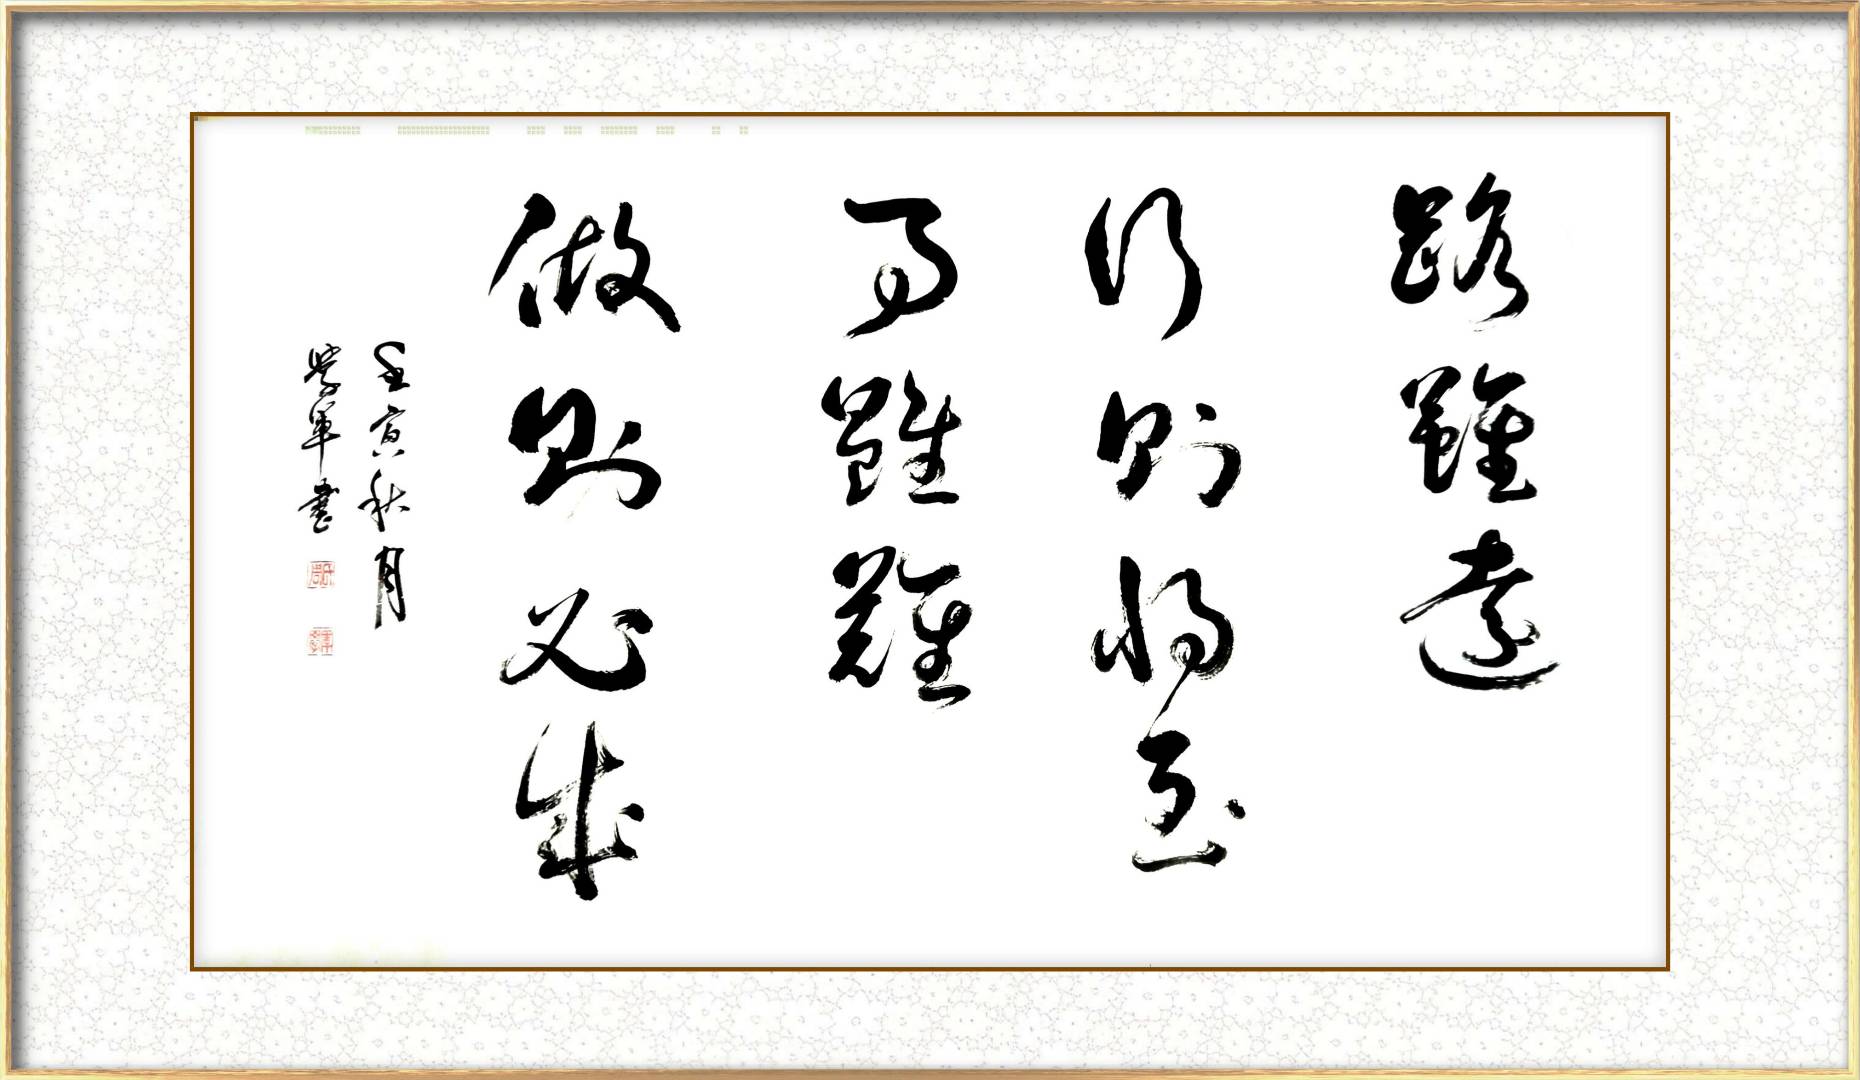 路雖遠
行則將至
事雖難
做則必成
壬寅秋月
學軍書